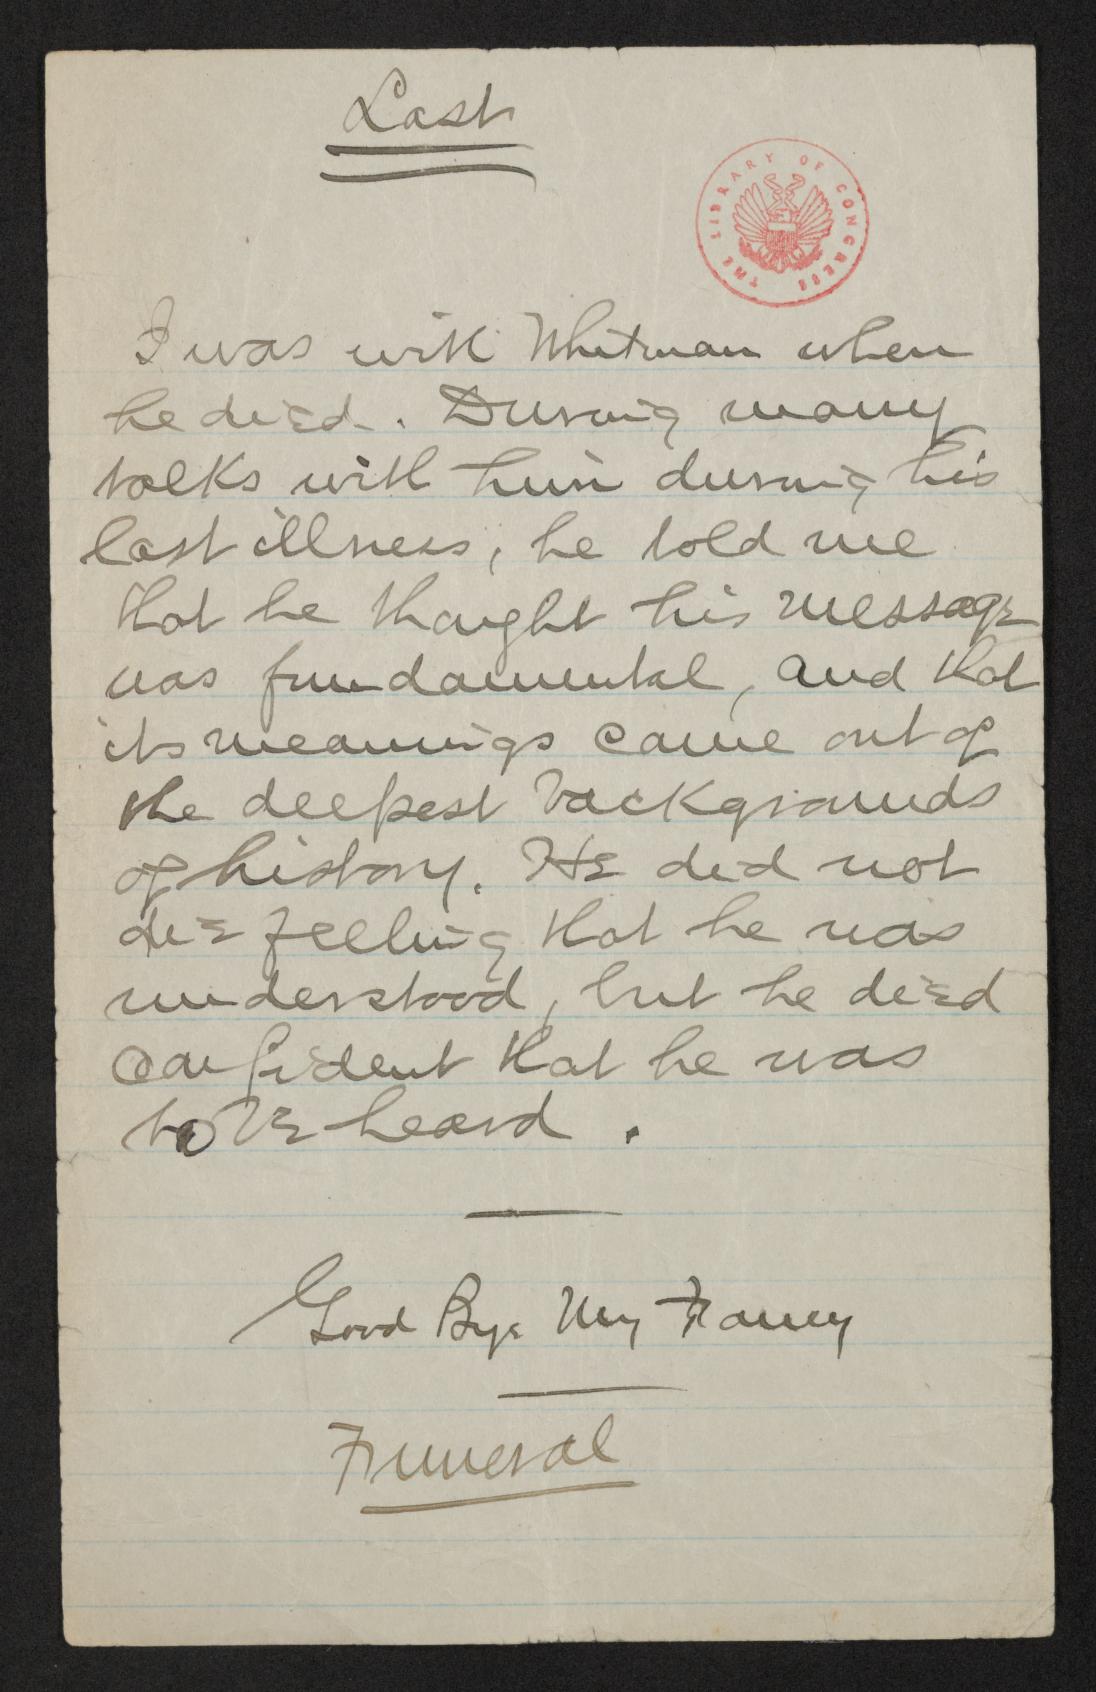 Last
THE LIBRARY OF CONGRESS
I was with Whitman when
he died. During many
talks with him during his
last illness, he told me
that he thought his message
was fundamental, and that
its meanings came out of
the deepest backgrounds
of history. He did not
die feeling that he was
understood, but he died
confident that he was
to be heard.
Good Bye My Fancy
Funeral